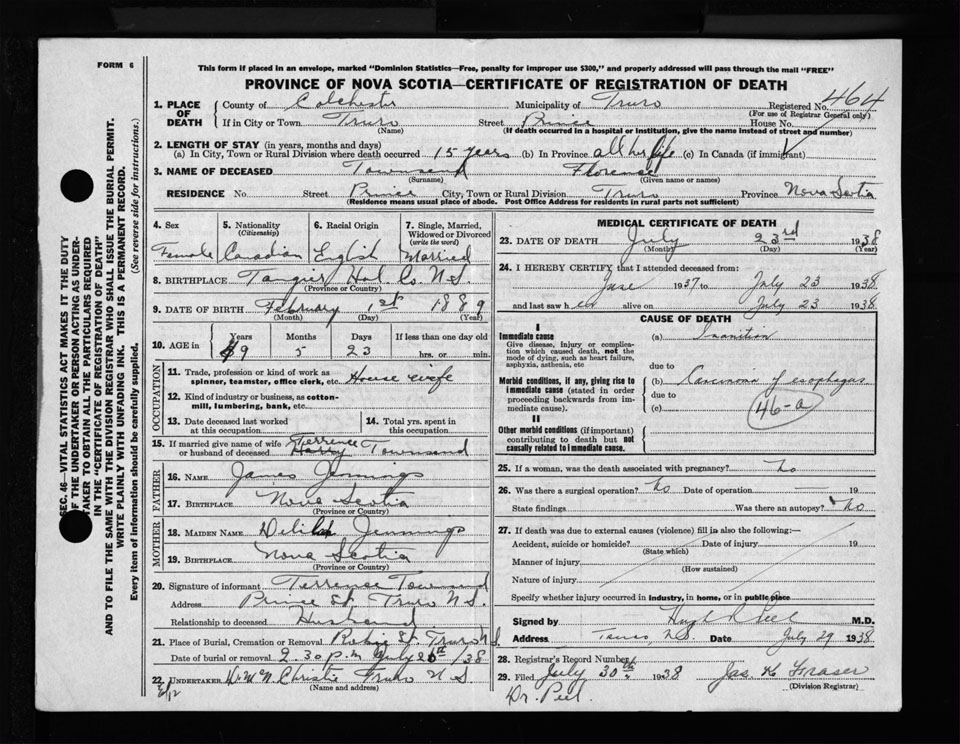 FORM 6
This form if placed in an envelope, marked "Dominion Statistics—Free, penalty for improper use $300," and properly addressed will pass through the mail "FREE"
PROVINCE OF NOVA SCOTIA—CERTIFICATE OF REGISTRATION OF DEATH
SEC. 46—VITAL STATISTICS ACT MAKES IT THE DUTY
OF THE UNDERTAKER OR PERSON ACTING AS UNDER-
TAKER TO OBTAIN ALL THE PARTICULARS REQUIRED
IN THE "CERTIFICATE OF REGISTRATION OF DEATH"
AND TO FILE THE SAME WITH THE DIVISION REGISTRAR WHO SHALL ISSUE THE BURIAL PERMIT.
WRITE PLAINLY WITH UNFADING INK. THIS IS A PERMANENT RECORD.
Every item of information should be carefully supplied. (See reverse side for instructions.)
1. PLACE OF DEATH County of Colchester Municipality of Truro Registered No. 464
(For use of Registrar General only)
If in City or Town Truro Street Prince House No.
(Name) (If death occurred in a hospital or institution, give the name instead of street and number)
2. LENGTH OF STAY (in years, months and days)
(a) In City, Town or Rural Division where death occurred 15 years (b) In Province all her life (c) In Canada (if immigrant)
3. NAME OF DECEASED Townsend Florence
(Surname) (Given name or names)
RESIDENCE No Street Prince City, Town or Rural Division Truro Province Nova Scotia
(Residence means usual place of abode. Post Office Address for residents in rural parts not sufficient)
4. Sex 5. Nationality (Citizenship) 6. Racial Origin 7. Single, Married, Widowed or Divorced (write the word)
Female Canadian English Married
8. BIRTHPLACE Tangier Hal. Co. N.S.
(Province or Country)
9. DATE OF BIRTH February 1st 1889
(Month) (Day) (Year)
10. AGE in Years Months Days If less than one day old
49 5 23 hrs. or min.
OCCUPATION
11. Trade, profession or kind of work as spinner, teamster, office clerk, etc. House wife
12. Kind of industry or business, as cotton-mill, lumbering, bank, etc.
13. Date deceased last worked at this occupation 14. Total yrs. spent in this occupation
15. If married give name of wife or husband of deceased Terrence Harry Townsend
FATHER
16. NAME James Jennings
17. BIRTHPLACE Nova Scotia
(Province or Country)
MOTHER
18. MAIDEN NAME Delilah Jennings
19. BIRTHPLACE Nova Scotia
(Province or Country)
20. Signature of informant Terrense Townsend
Address Prince St. Truro N.S.
Relationship to deceased Husband
21. Place of Burial, Cremation or Removal Robie St. Truro N.S.
Date of burial or removal 2.30 p.m July 26th /38
22. UNDERTAKER Christie Truro N S
(Name and address)
MEDICAL CERTIFICATE OF DEATH
23. DATE OF DEATH July 23rd 1938
(Month) (Day) (Year)
24. I HEREBY CERTIFY that I attended deceased from:
June 1937 to July 23 1938
and last saw her alive on July 23 1938
CAUSE OF DEATH
I
Immediate cause (a) Inanition
Give disease, injury or complication which caused death, not the mode of dying, such as heart failure, asphyxia, asthenia, etc. due to
Morbid conditions, if any, giving rise to immediate cause (stated in order proceeding backwards from immediate cause). (b) Carcinoma of esophagus
due to
(c) 46-a
II
Other morbid conditions (if important) contributing to death but not causally related to immediate cause.
25. If a woman, was the death associated with pregnancy? No
26. Was there a surgical operation? No Date of operation 19
State findings Was there an autopsy? No
27. If death was due to external causes (violence) fill in also the following:—
Accident, suicide or homicide? Date of injury 19
(State which)
Manner of injury
(How sustained)
Nature of injury
Specify whether injury occurred in industry, in home, or in public place
Signed by Hugh R Peel M.D.
Address Truro, N.S. Date July 29 1938
28. Registrar's Record Number
29. Filed July 30th 1938 Jas K Fraser
(Division Registrar)
Dr. Peel.